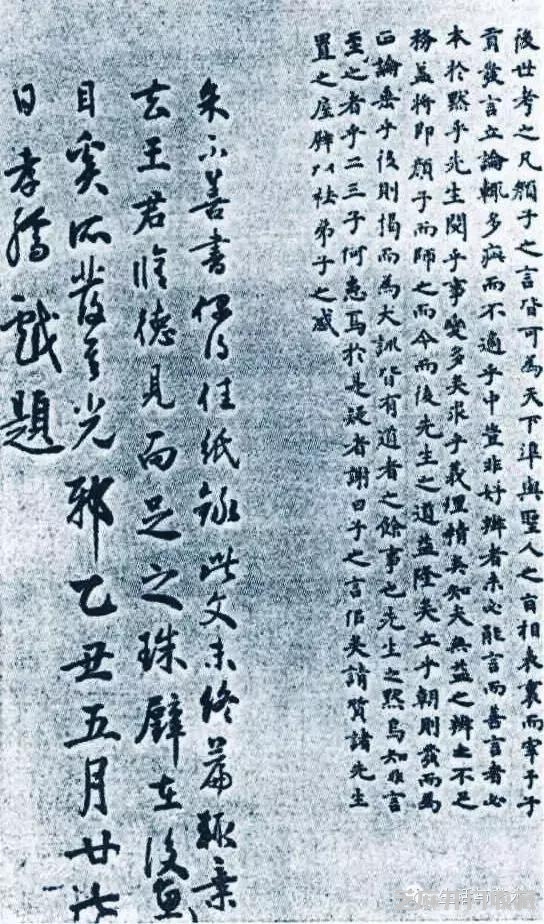 後世考之凡顏子之言皆可為天下準與聖人之旨相表裏而宰予子
貢發言立論輒多病而不適乎中豈非好辨者未必能言而善言者必
本於默乎先生閱乎事變多矣求乎義理精矣知夫無益之辨之不足
務益將即顏子而師之而今而後先生之道益隆矣立乎朝則發而為
正論垂乎後則揭而為大訓皆有道者之餘事也先生之默烏知非言
至之者乎二三子何惑焉於是疑者謝曰子之言信矣請質諸先生
置之座壁以祛弟子之惑
不善書偶得佳紙錄此文未終篇輒棄
去王君脩德見而足之珠璧在後
目奚所發其光邪乙丑五月廿
日孝孺戲題